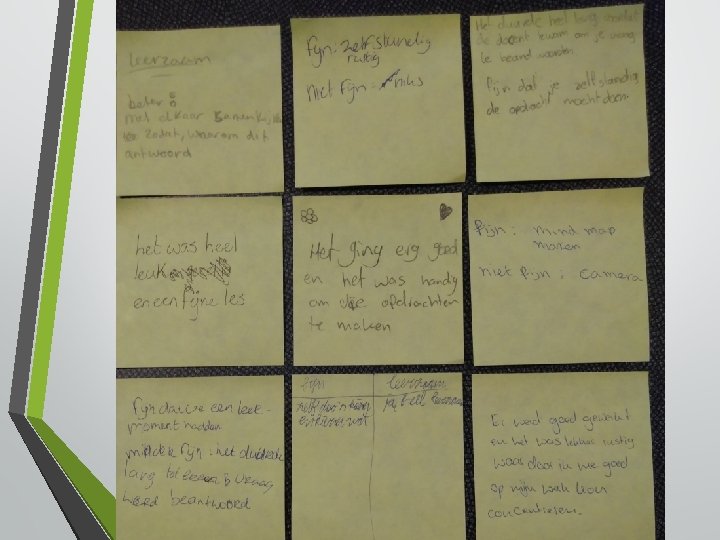 leerzaam
beter:
met elkaar samen kijken
zodat, waarom dit
antwoord
fijn: zelfstandig
rustig
niet fijn: niks
Het duurde heel lang voordat
de docent kwam om je vraag
te beantwoorden
fijn dat je zelfstandig
de opdracht mocht doen.
het was heel
leuk
en een fijne les
Het ging erg goed
en het was handig
om de opdrachten
te maken
fijn: mind map
maken
niet fijn: camera
fijn dat we een leer-
moment hadden
minder fijn: het duurde
lang tot vraag
werd beantwoord
fijn
leerzaam
ja, veel
Er werd goed gewerkt
en het was lekker rustig
waardoor we goed
op mijn werk kon
concentreren.